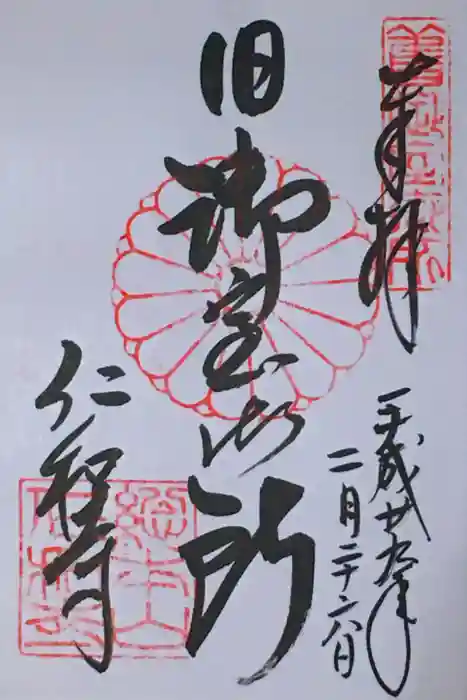 奉拝
平成廿九年
二月二十六日
旧御室御所
仁和寺